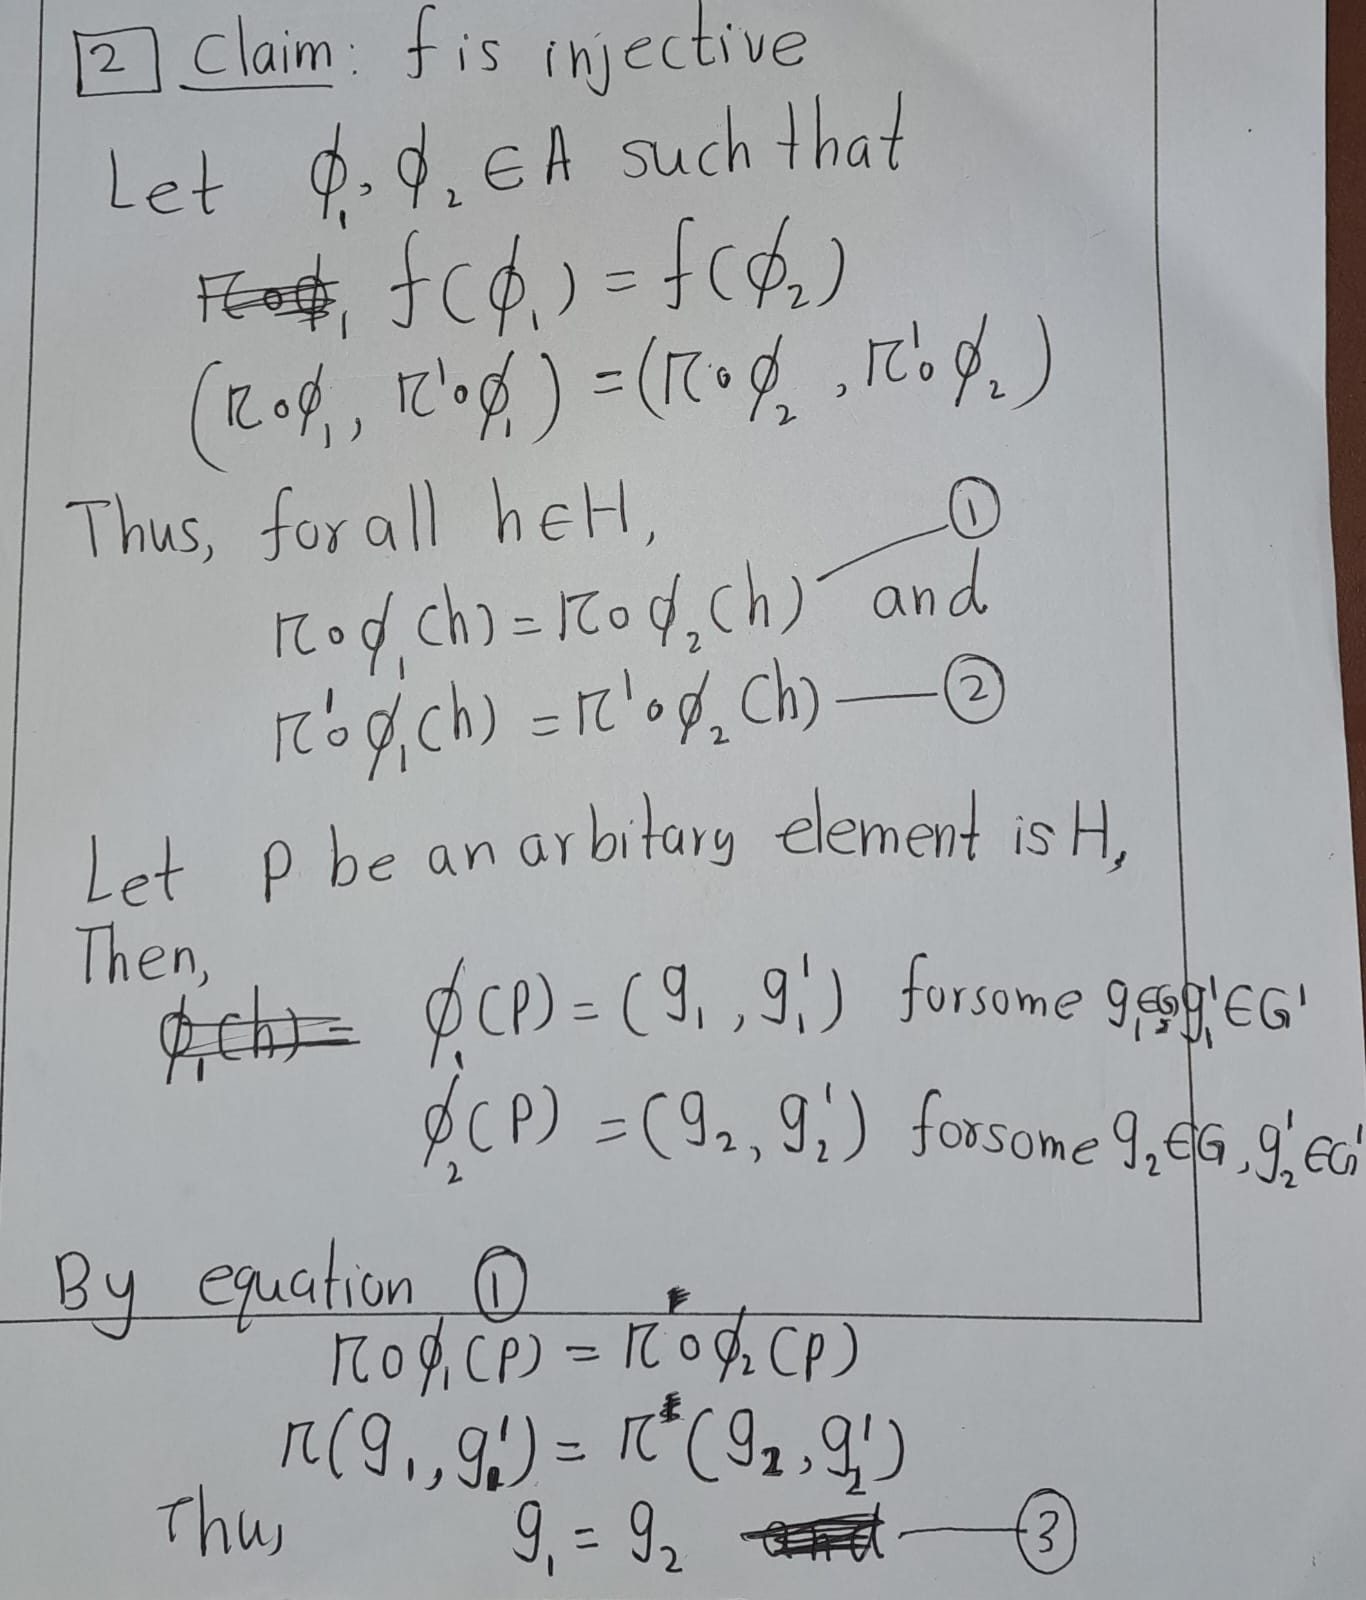 [2] Claim: f is injective
Let ϕ₁, ϕ₂ ∈ A such that
f(ϕ₁) = f(ϕ₂)
(π∘ϕ₁, π'∘ϕ₁) = (π∘ϕ₂, π'∘ϕ₂)
Thus, for all h∈H,
π∘ϕ₁(h) = π∘ϕ₂(h) — ① and
π'∘ϕ₁(h) = π'∘ϕ₂(h) — ②
Let p be an arbitary element is H,
Then,
ϕ₁(p) = (g₁, g₁') for some g₁∈G, g₁'∈G'
ϕ₂(p) = (g₂, g₂') for some g₂∈G, g₂'∈G'
By equation ①
π∘ϕ₁(p) = π∘ϕ₂(p)
π(g₁, g₁') = π(g₂, g₂')
Thus g₁ = g₂ — ③